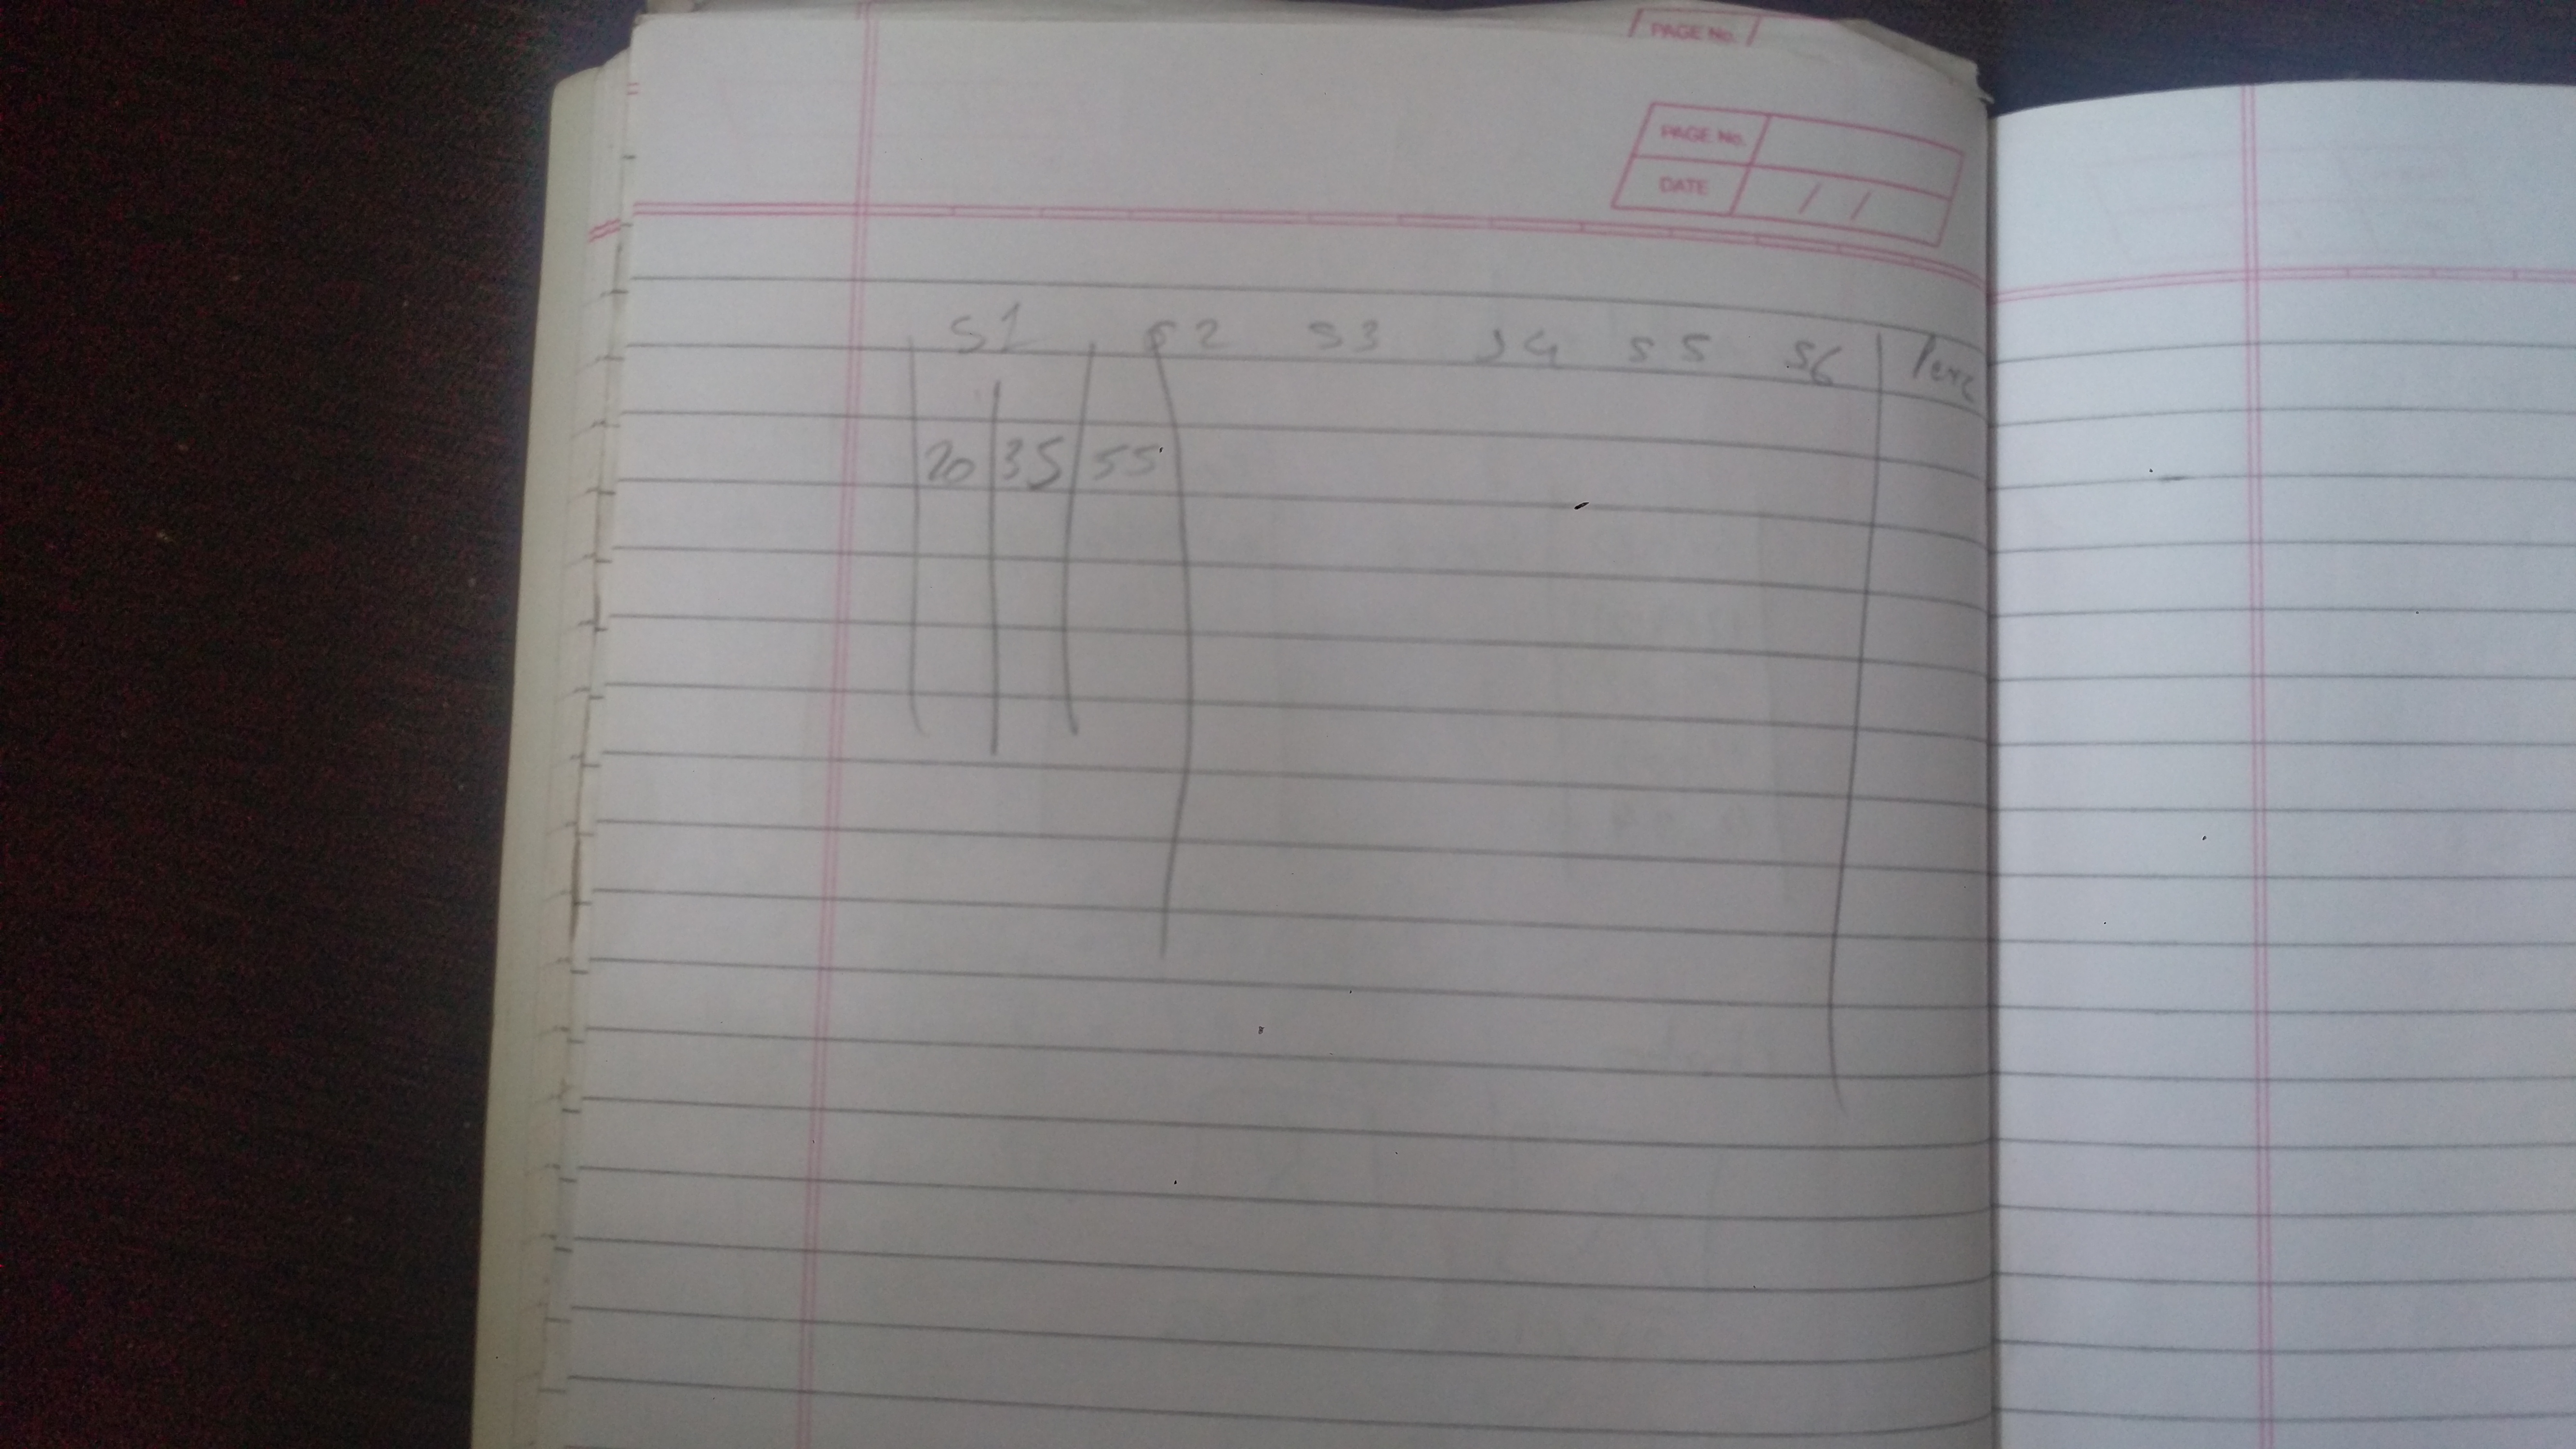 PAGE No.
PAGE No.
DATE / /
S1 S2 S3 S4 S5 S6 Perc
20 35 55